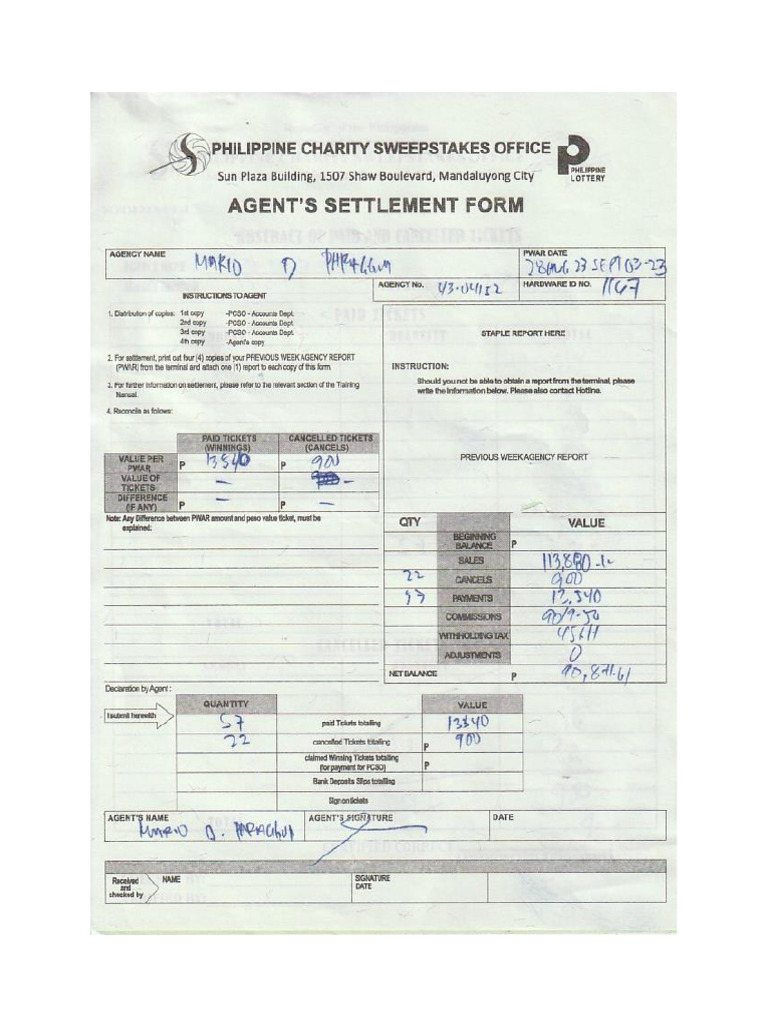 PHILIPPINE CHARITY SWEEPSTAKES OFFICE
PHILIPPINE
LOTTERY
Sun Plaza Building, 1507 Shaw Boulevard, Mandaluyong City
AGENT'S SETTLEMENT FORM
AGENCY NAME MARIO D PWAR DATE
28 AUG 23 SEPT 03-23
AGENCY No. 43-04152 HARDWARE ID NO. 1167
INSTRUCTIONS TO AGENT
1. Distribution of copies: 1st copy -PCSO - Accounts Dept.
2nd copy -PCSO - Accounts Dept.
3rd copy -PCSO - Accounts Dept.
4th copy -Agent's copy
2. For settlement, print out four (4) copies of your PREVIOUS WEEK AGENCY REPORT
(PWAR) from the terminal and attach one (1) report to each copy of this form.
3. For further information on settlement, please refer to the relevant section of the Training
Manual.
4. Reconcile as follows:
STAPLE REPORT HERE
INSTRUCTION:
Should you not be able to obtain a report from the terminal, please
write the information below. Please also contact Hotline.
PREVIOUS WEEK AGENCY REPORT
PAID TICKETS (WINNINGS) CANCELLED TICKETS (CANCELS)
VALUE PER PWAR P 13340 P 900
VALUE OF TICKETS —
DIFFERENCE (IF ANY) P — P —
Note: Any Difference between PWAR amount and peso value ticket, must be
explained:
QTY VALUE
BEGINNING BALANCE P
SALES
22 CANCELS 900
PAYMENTS
COMMISSIONS
WITHHOLDING TAX
ADJUSTMENTS 0
NET BALANCE P
Declaration by Agent :
QUANTITY VALUE
I submit herewith 57 paid Tickets totalling 13340
22 cancelled Tickets totalling P 900
claimed Winning Tickets totalling P
(for payment for PCSO)
Bank Deposits Slips totalling
Sign on tickets
AGENT'S NAME AGENT'S SIGNATURE DATE
MARIO D.
Received and checked by NAME SIGNATURE
DATE